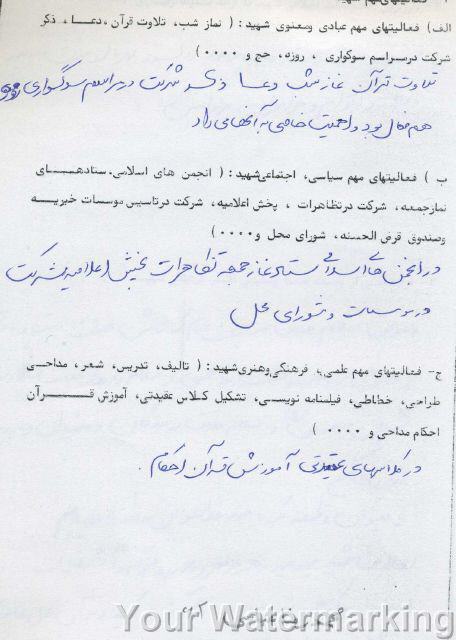 الف) فعالیتهای مهم عبادی ومعنوی شهید: ( نماز شب، تلاوت قرآن ،دعا ، ذکر
شرکت درمراسم سوگواری ، روزه، حج و ۰۰۰۰ )
تلاوت قرآن نماز شب دعا ذکر شرکت در مراسم سوگواری روزه
هم فعال بود و اهمیت خاصی به آنها می داد
ب ) فعالیتهای مهم سیاسی، اجتماعی شهید: ( انجمن های اسلامی.ستادهای
نمازجمعه، شرکت درتظاهرات ، پخش اعلامیه، شرکت درتاسیس موسسات خیریه
وصندوق قرض الحسنه، شورای محل و۰۰۰۰ )
در انجمن های اسلامی ستاد نماز جمعه تظاهرات پخش اعلامیه شرکت
در موسسات و شورای محل
ج- فعالیتهای مهم علمی، فرهنگی وهنری شهید: ( تالیف، تدریس، شعر، مداحی
طراحی، خطاطی، فیلمنامه نویسی، تشکیل کلاس عقیدتی، آموزش قرآن
احکام مداحی و ۰۰۰۰ )
در کلاسهای عقیدتی آموزش قرآن احکام .
Your Watermarking